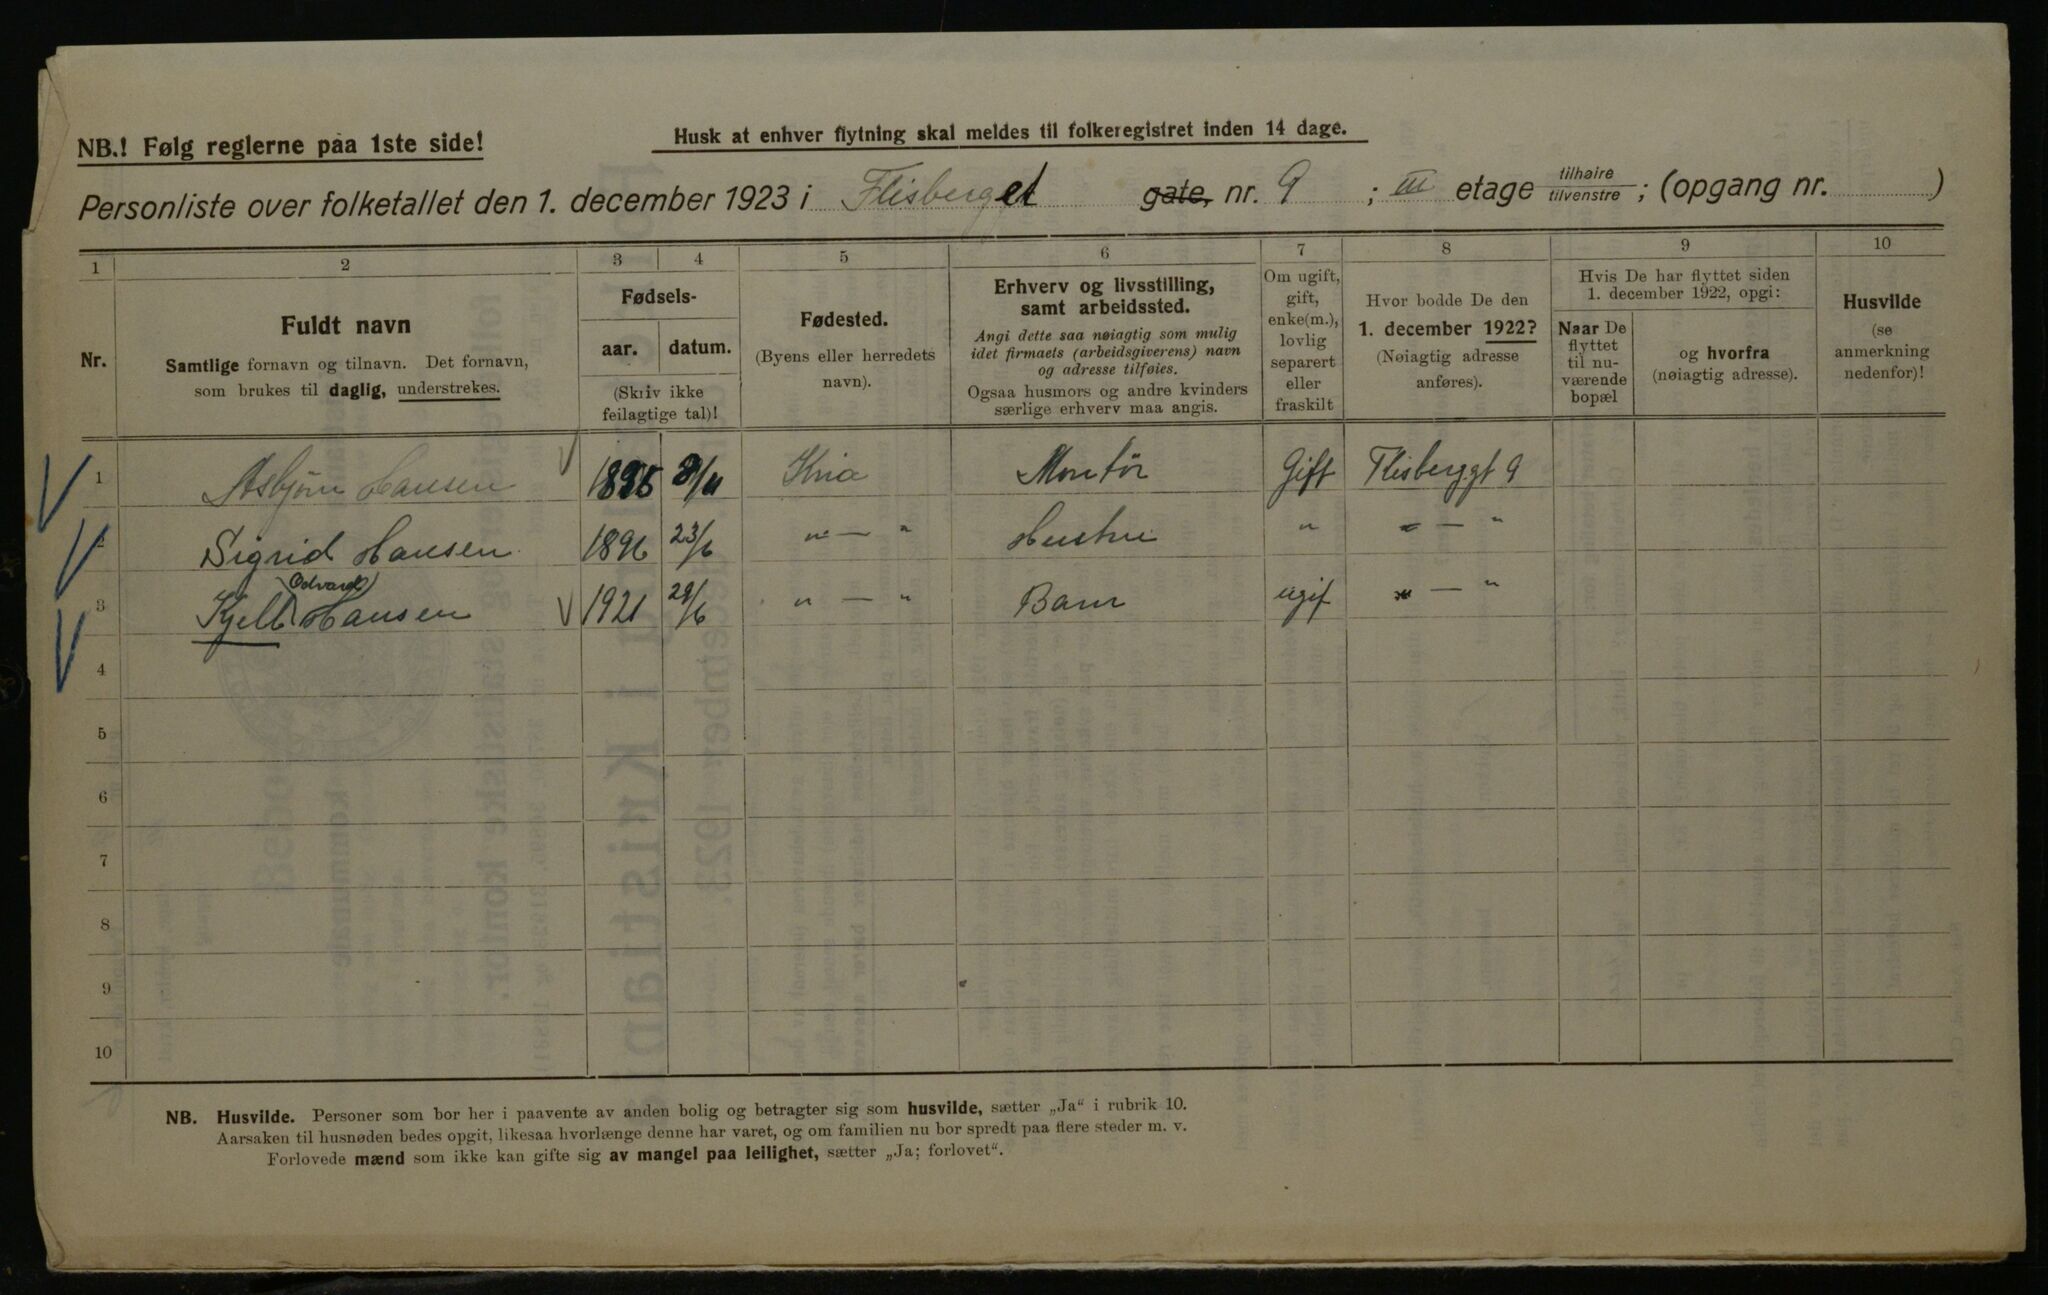 NB.! Følg reglerne paa 1ste side!
Husk at enhver flytning skal meldes til folkeregistret inden 14 dage.
Personliste over folketallet den 1. december 1923 i Flisberget gate, nr. 9 ; III etage tilhøire tilvenstre ; (opgang nr. )
1 2 3 4 5 6 7 8 9 10
Nr.
Fuldt navn
Samtlige fornavn og tilnavn. Det fornavn,
som brukes til daglig, understrekes.
Fødsels-
aar. datum.
(Skriv ikke
feilagtige tal)!
Fødested.
(Byens eller herredets
navn).
Erhverv og livsstilling,
samt arbeidssted.
Angi dette saa nøiagtig som mulig
idet firmaets (arbeidsgiverens) navn
og adresse tilføies.
Ogsaa husmors og andre kvinders
særlige erhverv maa angis.
Om ugift,
gift,
enke(m.),
lovlig
separert
eller
fraskilt
Hvor bodde De den
1. december 1922?
(Nøiagtig adresse
anføres).
Hvis De har flyttet siden
1. december 1922, opgi:
Naar De
flyttet
til nu-
værende
bopæl
og hvorfra
(nøiagtig adresse).
Husvilde
(se
anmerkning
nedenfor)!
1 Asbjørn Hansen Kria Montør Gift Flisberggt 9
2 Sigrid Hansen 1896 23/6 " — " Hustru " " — "
Odvard
3 Kjell Hansen 1921 29/6 " — " Barn ugif " — "
4
5
6
7
8
9
10
NB. Husvilde. Personer som bor her i paavente av anden bolig og betragter sig som husvilde, sætter „Ja“ i rubrik 10.
Aarsaken til husnøden bedes opgit, likesaa hvorlænge denne har varet, og om familien nu bor spredt paa flere steder m. v.
Forlovede mænd som ikke kan gifte sig av mangel paa leilighet, sætter „Ja; forlovet“.